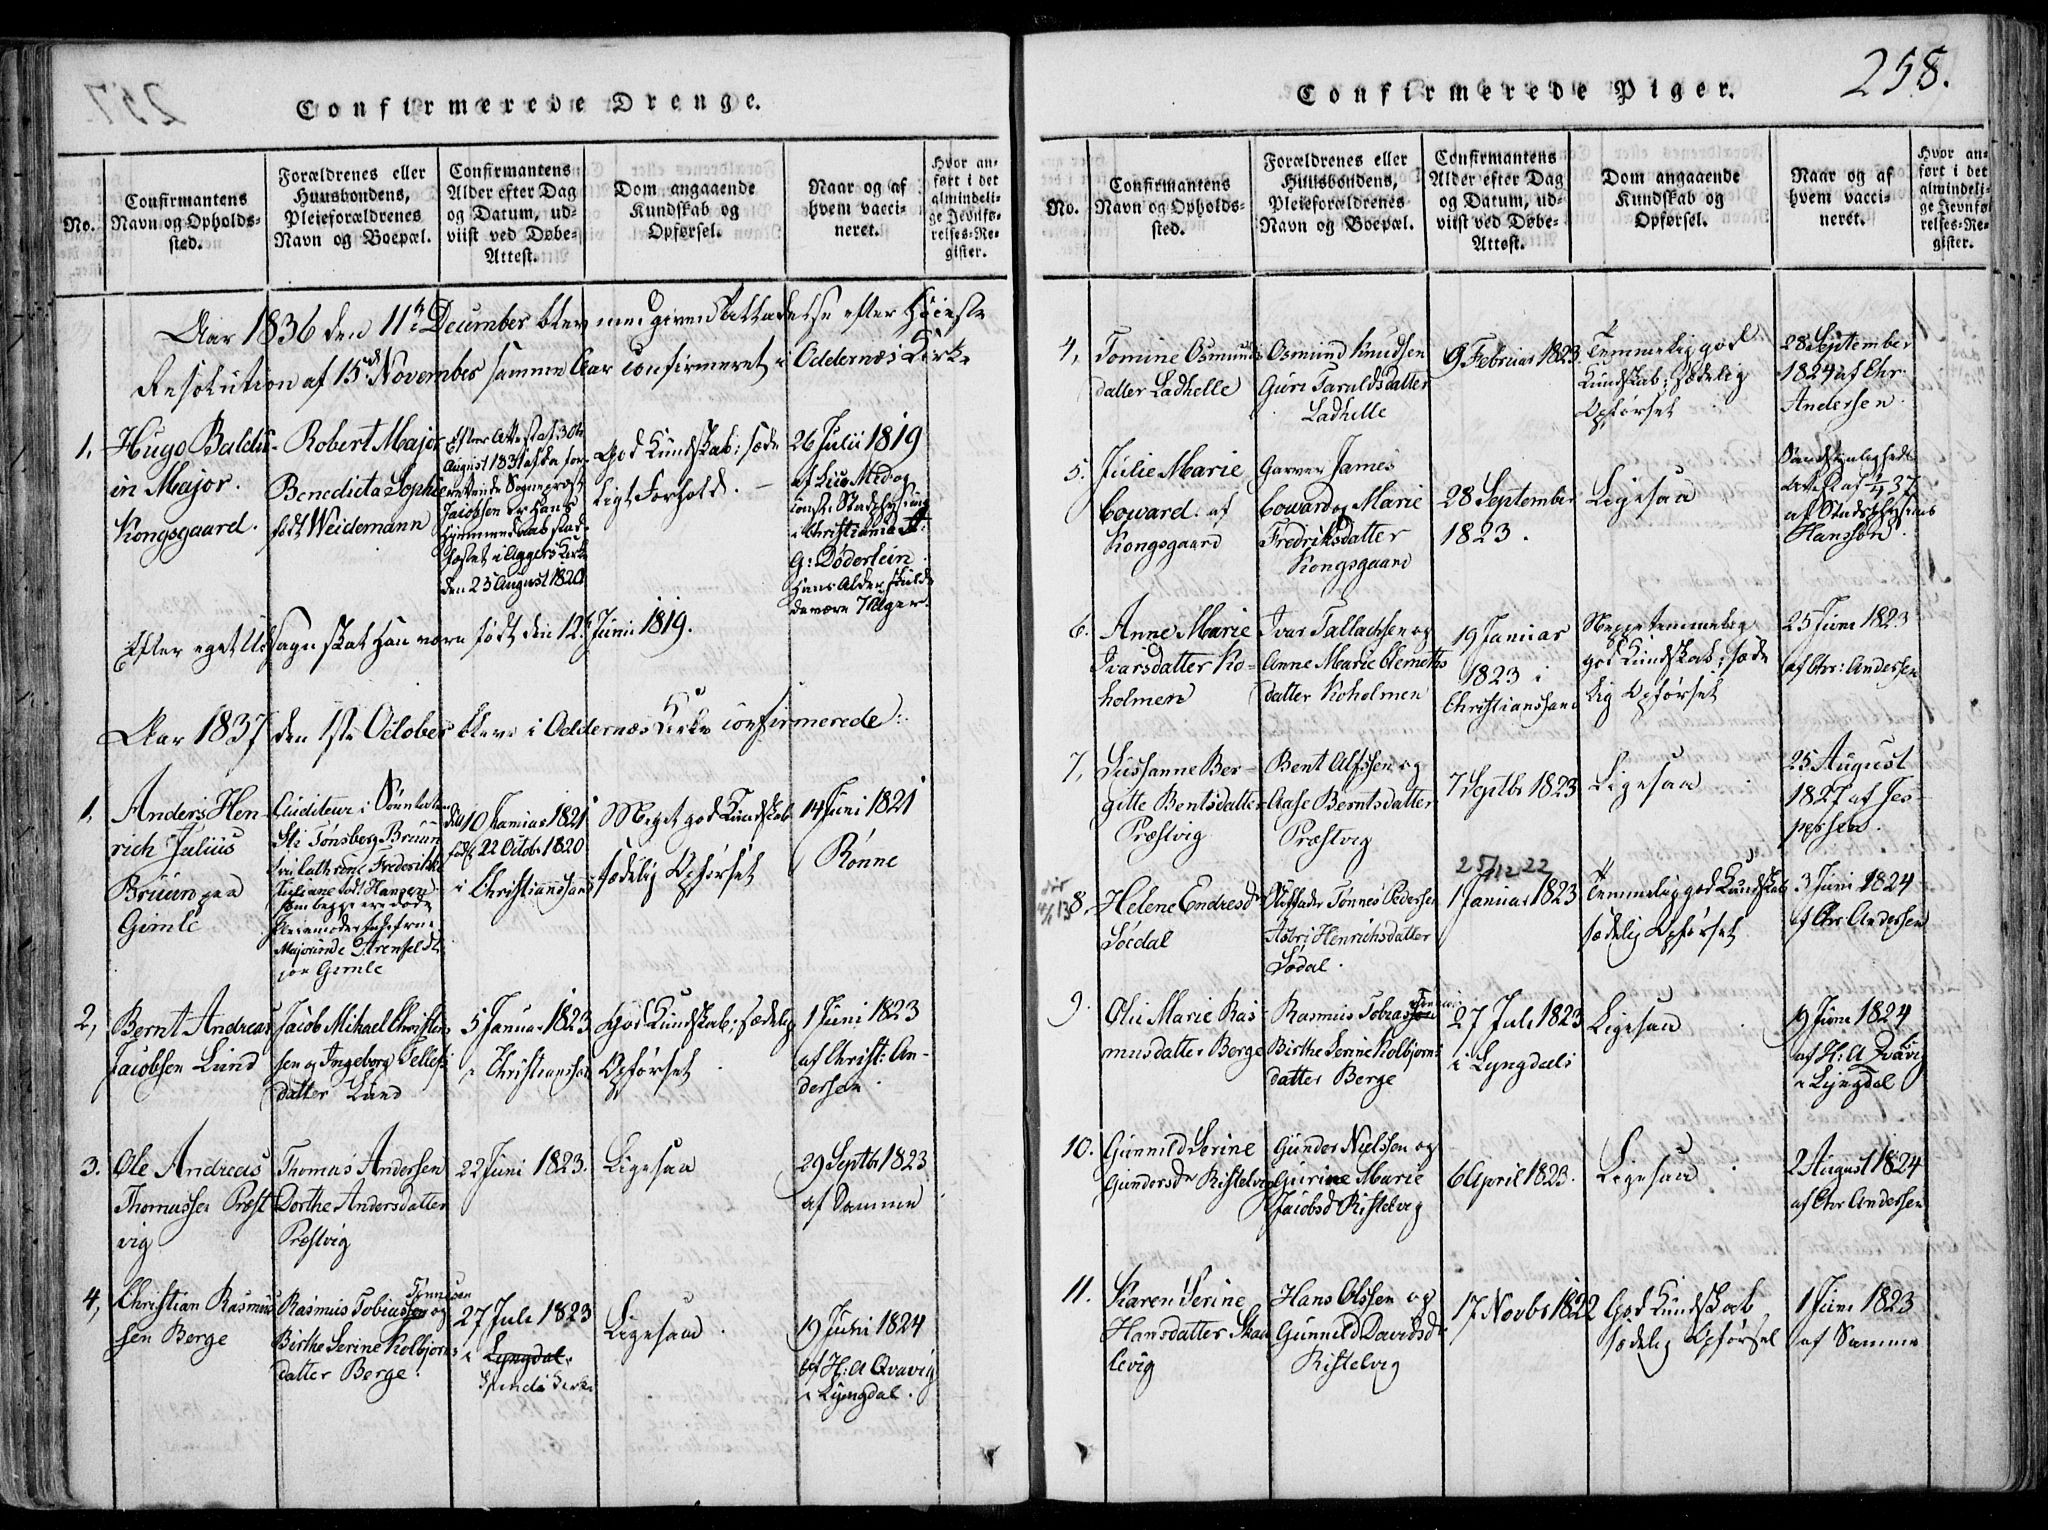 Confirmerede Drenge.
No.
Confirmantens
Navn og Opholds-
sted.
Forældrenes eller
Huusbondens,
Pleieforældrenes
Navn og Boepæl.
Confirmantens
Alder efter Dag
og Datum, ud-
viist ved Døbe-
Attest.
Dom angaaende
Kundskab og
Opførsel.
Naar og af
hvem vacci-
neret.
Hvor an-
ført i det
almindeli-
ge Jevnfø-
relses-Re-
gister.
Aar 1836 den 11te December blev med given Tilladelse efter Høieste
Resolution af 15de November samme Aar confirmeret i Oddernæs Kirke
1,
Hugo Baldu-
in Major.
Kongsgaard.
Robert Major
Benedicta Sophie
født Weidemann
Efter Attest af 30te
August 1831 af
Sogneprest
Jacobsen er Hans
døbt i Aggers Kirke
den 25 August 1820
God Kundskab; sæde
ligt Forhold. —
26 Julii 1819
af
const: Stadsphysicus
i Christiania
G: Døderlein
Hans Alder
7 Uger.
Efter eget Udsagn skal Han være født den 12te Junii 1819.
Aar 1837 den 1ste October bleve i Oddernæs Kirke confirmerede:
1,
Anders Hen-
rich Julius
Bruun paa
Gimle
Auditeur
Tønsberg Bruun
Frederikke
Juliane født Hansen
som begge ere døde
Pleiemoder
Majorinde Arenfeldt
paa Gimle
døbt 10 Januar 1821
født 22 Octobr 1820
i Christianssand
Meget god Kundskab
sædelig Opførsel
14 Juni 1821
Rønne
2,
Bernt Andreas
Jacobsen Lund
Jacob Mikael Christen
sen og Ingeborg Tellefs
datter Lund
5 Januar 1823
i Christianssand
God Kundskab; sædelig
Opførsel
1 Juni 1823
af Christ: An-
dersen
3.
Ole Andreas
Thomassen Præst
vig
Thomas Andersen
Dorthe Andersdatter
Præstvig
22 Juni 1823.
Ligesaa
29 Septbr 1823
af Samme
4,
Christian Rasmus
sen Berge
Tønnesen
Rasmus Tobiassen og
Birthe Serine Kolbjørns
datter Berge.
27 Juli 1823
i Lyngdal
Kirke
Ligesaa
19 Juni 1824
af H: A Qvavig
i Lyngdal.
258.
Confirmerede Piger.
No.
Confirmantens
Navn og Opholds-
sted.
Forældrenes eller
Huusbondens,
Pleieforældrenes
Navn og Boepæl.
Confirmantens
Alder efter Dag
og Datum, ud-
viist ved Døbe-
Attest.
Dom angaaende
Kundskab og
Opførsel.
Naar og af
hvem vacci-
neret.
Hvor an-
ført i det
almindeli-
ge Jevnfø-
relses-Re-
gister.
4,
Tomine Osmunds
datter Ladhelle
Osmund Knudsen
Guri Taraldsdatter
Ladhelle
9 Februar 1823
Temmelig god
Kundskab; sædelig
Opførsel
28 September
1824 af Chr.
Andersen.
5.
Julie Marie
Coward. af
Kongsgaard
Garver James
Coward og Marie
Fredriksdatter
Kongsgaard
28 September
1823.
Ligesaa
Attest af 37
af Stadsphysicus
Hansson.
6.
Anne Marie
Ivarsdatter Ko-
holmen
Ivar Tallachsen og
Anne Marie Clemets
datter Koholmen
19 Januar
1823 i
Christianssand
Neppe temmelig
god Kundskab; sæde
lig Opførsel
25 Juni 1823
af Chr: Andersen
7,
Sussanne Ber-
gitte Bentsdatter
Præstvig
Bent Alfssen og
Aase Berntsdatter
Præstvig
7 Septbr 1823
Ligesaa
25 August
1827 af Jes-
persen.
8,
Helene Endresdr
Sødal
Stiffader Tønnes Pedersen
Asbri Henrichsdatter
Sødal.
25/12 22
1 Januar 1823
Temmelig god Kundskab
sædelig Opførsel
3 Juni 1824
af Chr Andersen
9.
Olu Marie Ras
musdatter Berge
Rasmus Tobiassen
Birthe Serine Kolbjørns
datter Berge
27 Juli 1823
i Lyngdal
Ligesaa
19 Juni 1824
af H: A Qvavig
i Lyngdal
10.
Gunnild Serine
Gundersdr Ristelvig
Gunder Nielssen og
Gurine Marie
Jacobsd Ristelvig
6 April 1823.
Ligesaa
2 August 1824
af Chr Andersen
11.
Karen Serine
Hansdatter Skaa
levig
Hans Olssen og
Gunnild Davidsdr
Ristelvig
17 Novbr 1822
God Kundskab
sædelig Opførsel
1 Juni 1823
af Samme